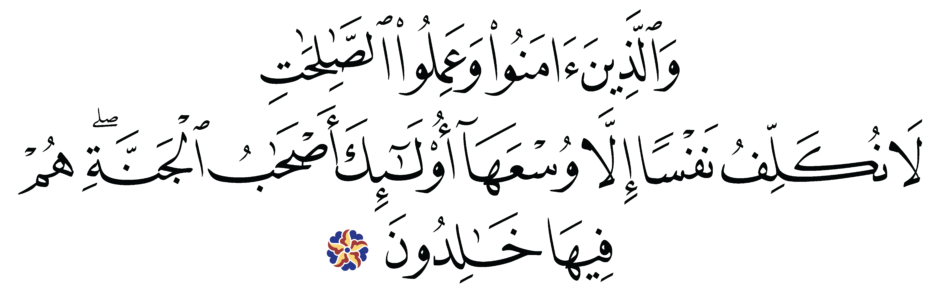 وَٱلَّذِينَ ءَامَنُوا۟ وَعَمِلُوا۟ ٱلصَّٰلِحَٰتِ
لَا نُكَلِّفُ نَفْسًا إِلَّا وُسْعَهَآ أُو۟لَٰٓئِكَ أَصْحَٰبُ ٱلْجَنَّةِ ۖ هُمْ
فِيهَا خَٰلِدُونَ